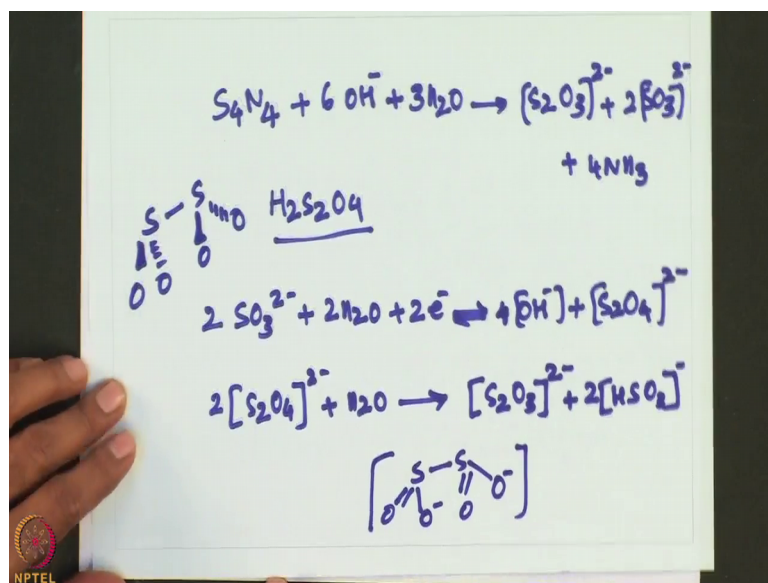 S₄N₄ + 6 OH⁻ + 3H₂O → [S₂O₃]²⁻ + 2[SO₃]²⁻
+ 4NH₃
S S O O O O
H₂S₂O₄
2 SO₃²⁻ + 2H₂O + 2e⁻ ⇌ 4[OH⁻] + [S₂O₄]²⁻
2[S₂O₄]²⁻ + H₂O → [S₂O₃]²⁻ + 2[HSO₃]⁻
[S S O O⁻ O O⁻]
NPTEL